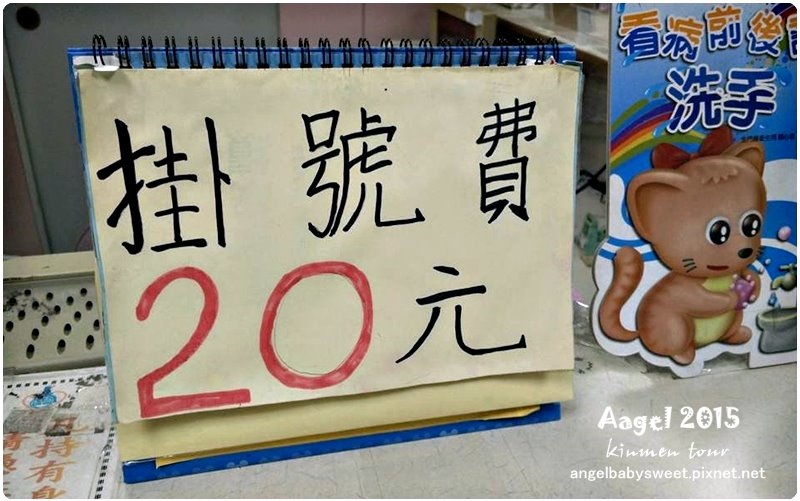 掛號費
20元
看病前後
洗手
凡持有身
Aagel 2015
kinmen tour
angelbabysweet.pixnet.net